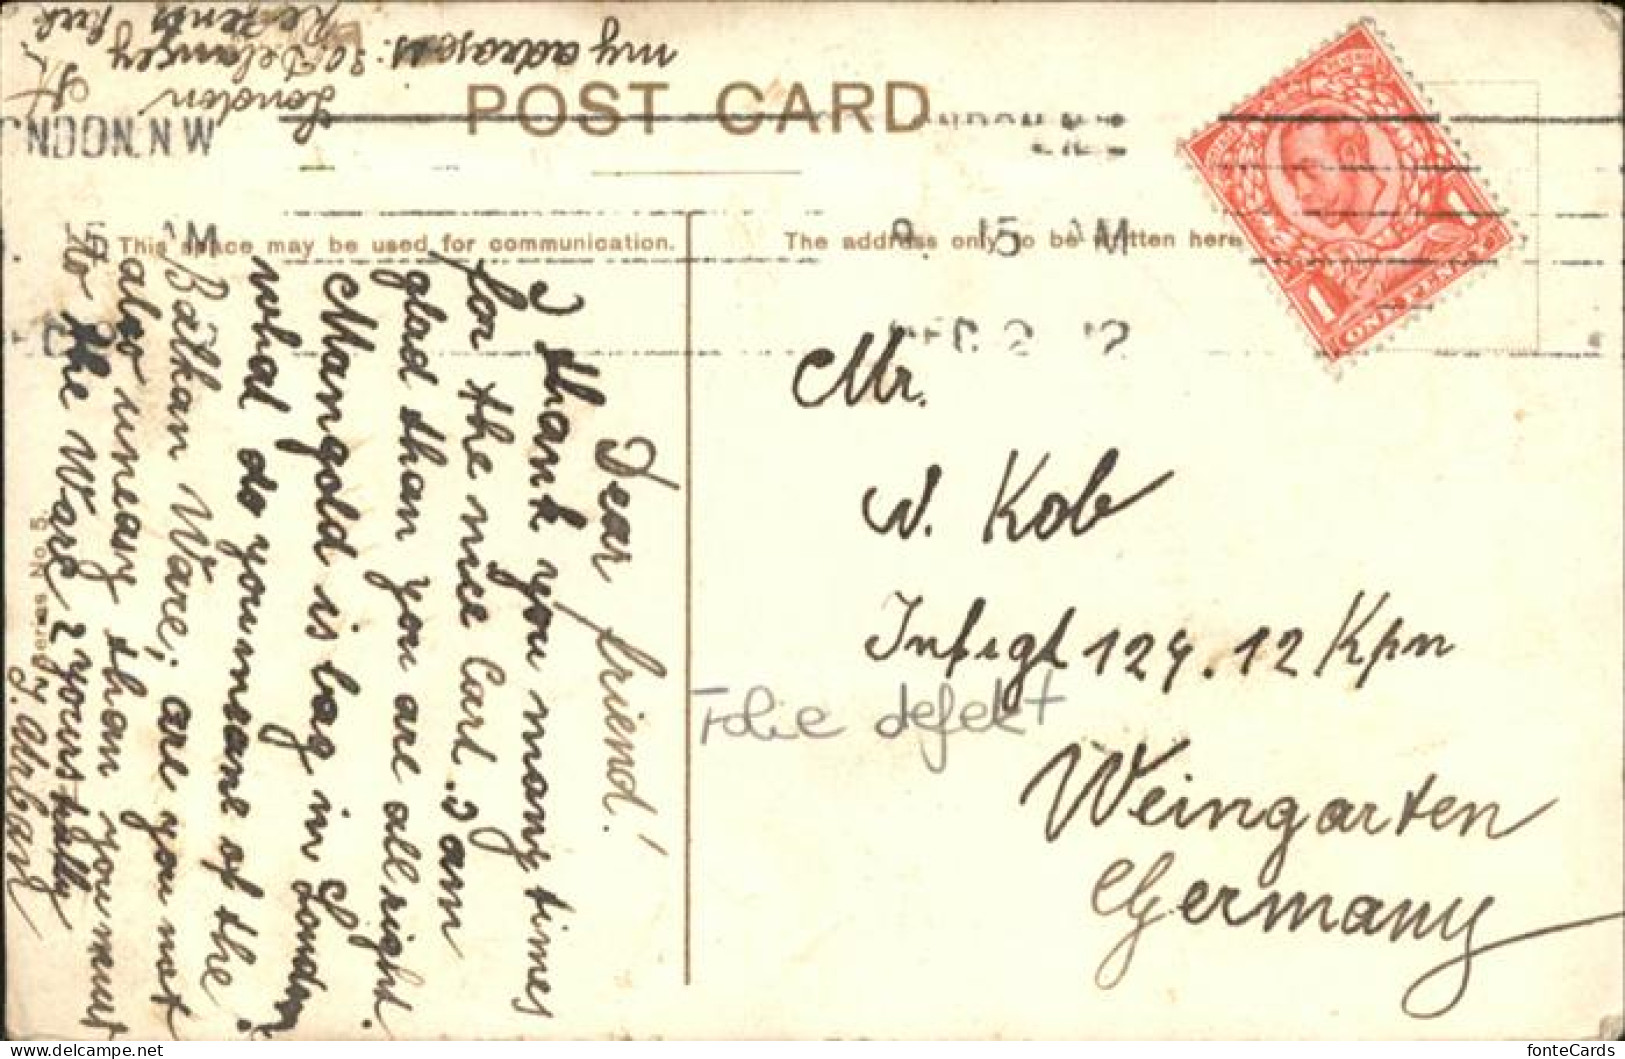 my adrases: 30 Delancey
St Regents Park
London
POST CARD
NDON. N.W
NDON. N.W
15 AM
9. 15 AM
DEC 2 12
This space may be used for communication.
The address only to be written here
Dear friend!
I thank you many times
for the nice Carl. I am
glad than you are all right.
Mangold is lag in London
what do you meane of the
Balkan Ware; are you not
also uneasy than you must
to the Ware? yours trully
J. Urban
Series No. 5.
Mr.
W. Kob
Inf igt 124. 12 Kpn
Weingarten
Germany
Folie defekt
1 ONE PENNY 1
fonteCards